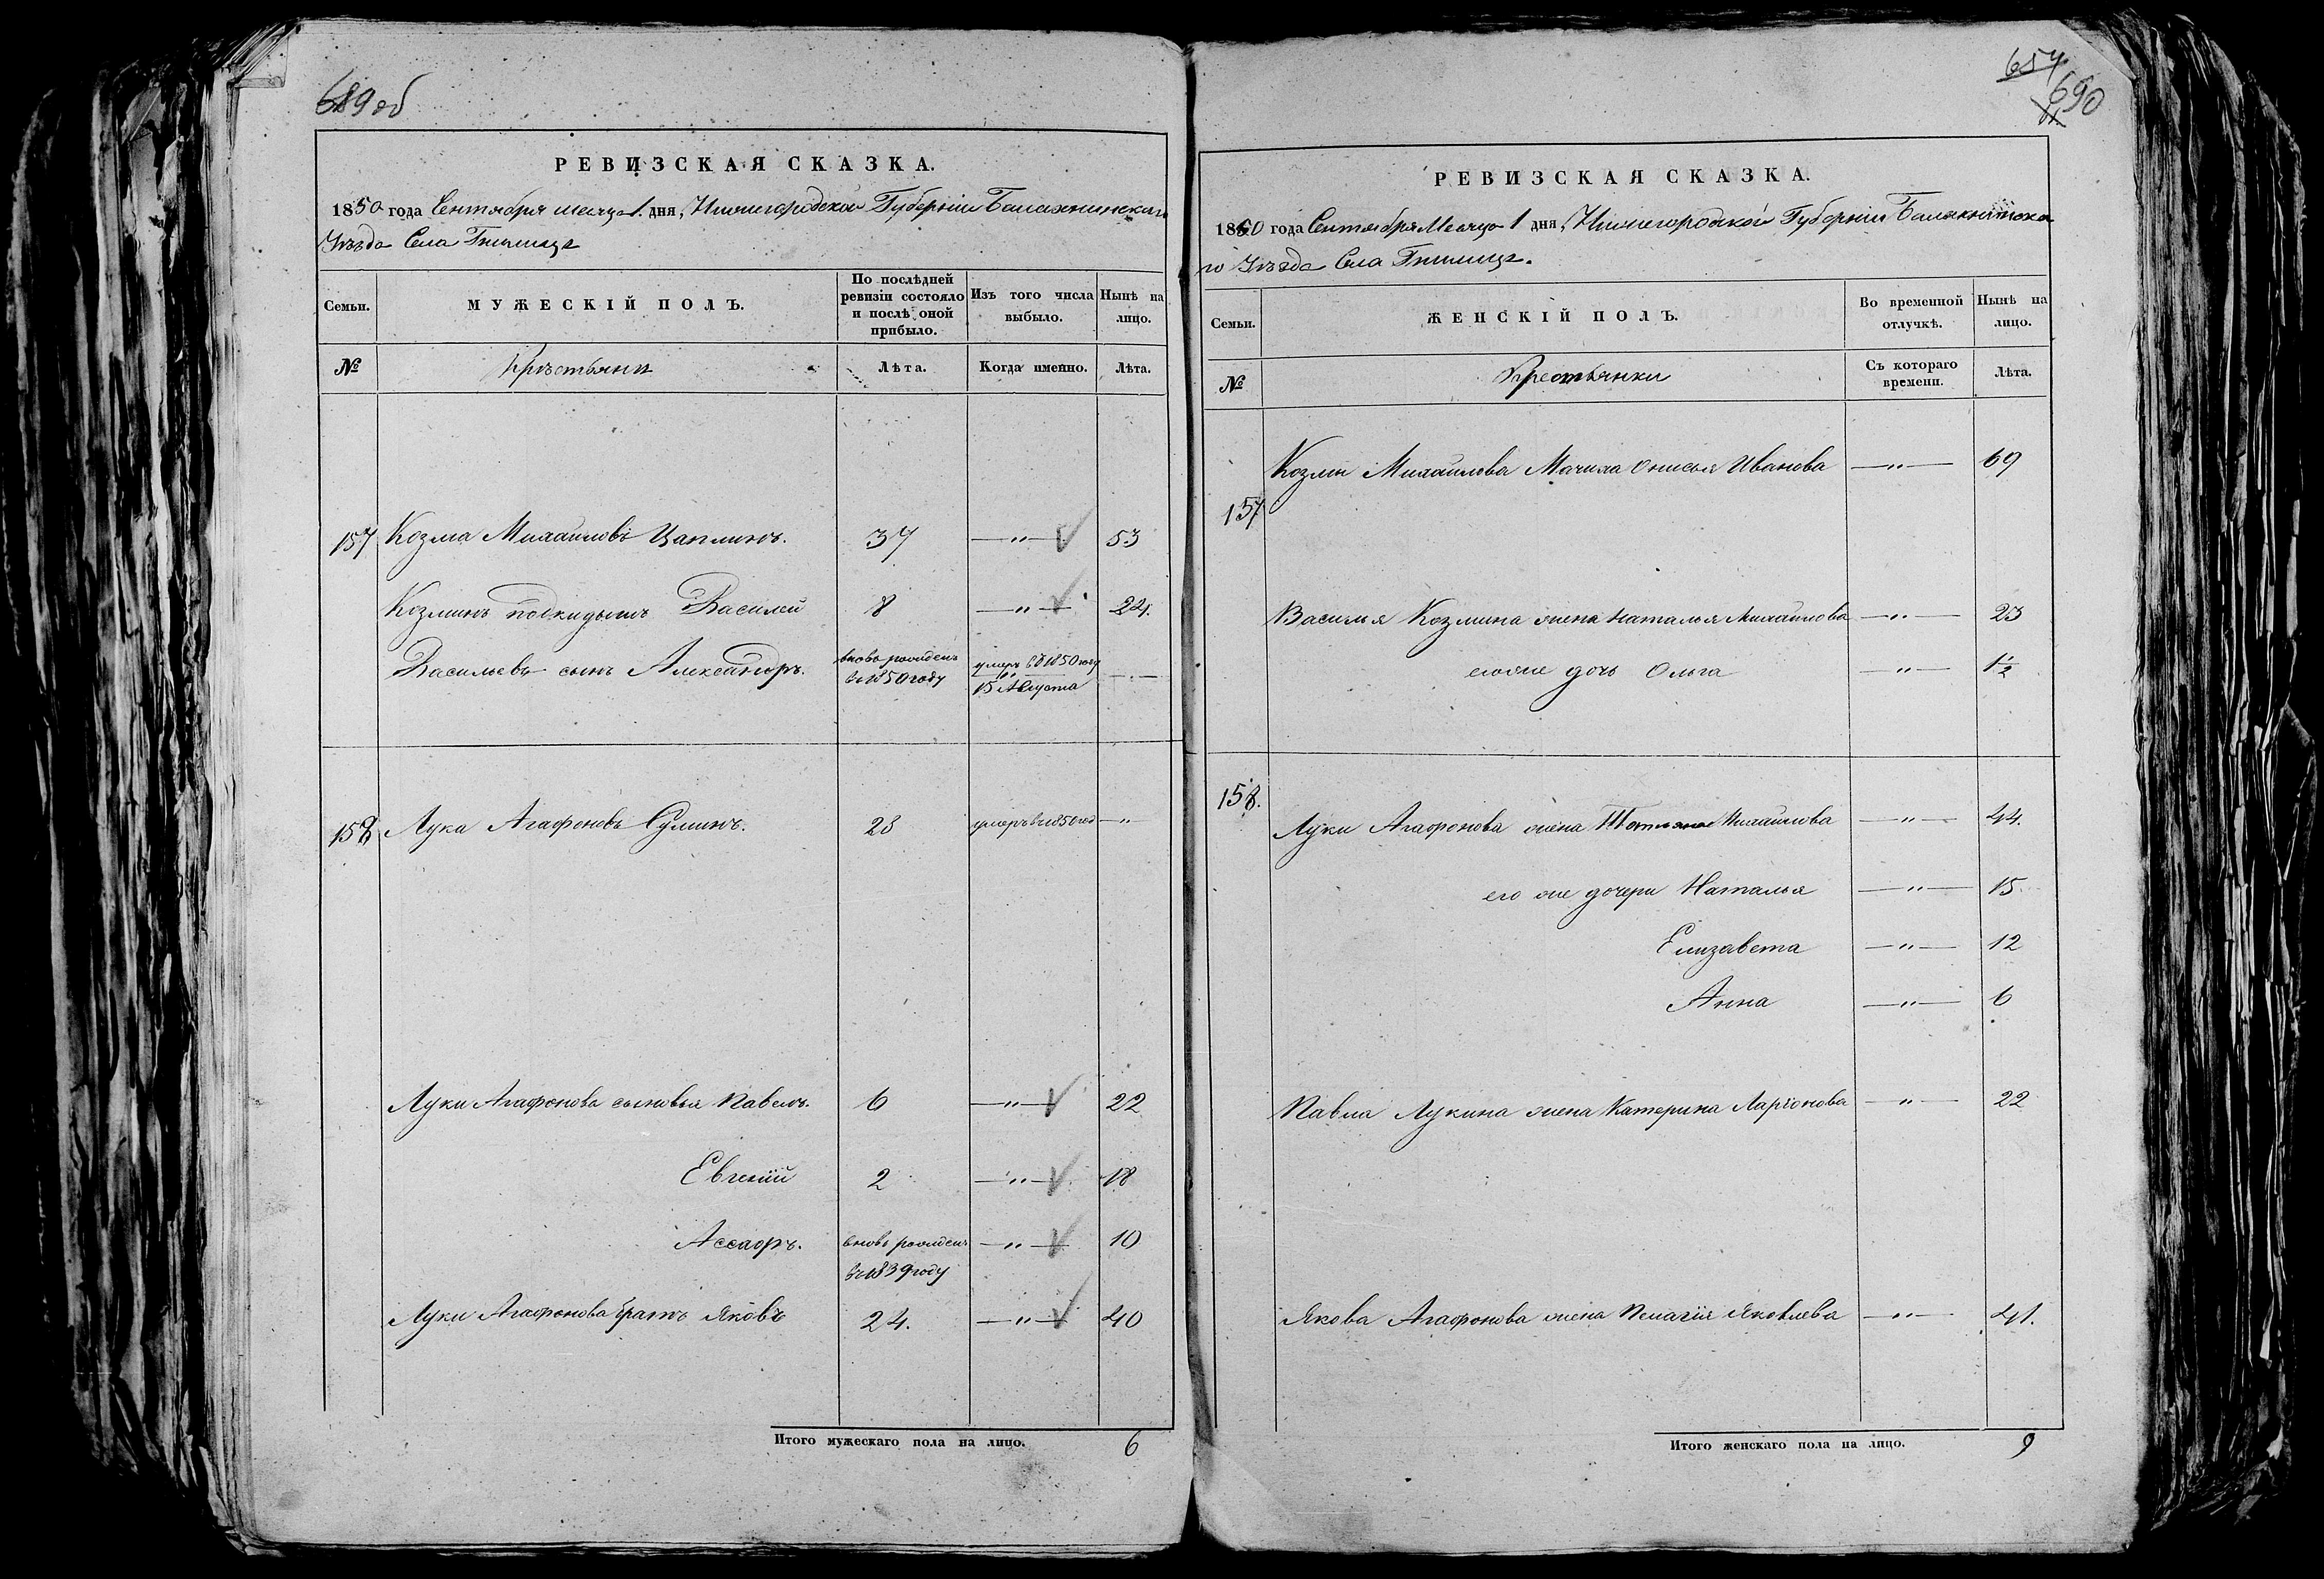 689 об
РЕВИЗСКАЯ СКАЗКА.
1850 года Сентября месяца 1. дня, Нижегородской Губернии Балахнинскаго
Уѣзда Села Гнилицъ
Семьи.
МУЖЕСКІЙ ПОЛЪ.
По послѣдней ревизіи состояло и послѣ оной прибыло.
Изъ того числа выбыло.
Нынѣ на лицо.
№
Крѣстьяни
Лѣта.
Когда именно.
Лѣта.
157 Козма Михайловъ Цаплинъ. 37 —"— 53
Козминъ подкидышъ Василей 8 —"— 24.
Васильевъ сынъ Александръ. вновь рожденъ въ 1850 году умеръ въ 1850 году 15 Августа —"—
158 Лука Агафоновъ Сулинъ. 28 умеръ въ 1850 год —"
Луки Агафонова сыновья Павелъ. 6 —"— 22
Евгений 2 —"— 18
Ассафъ. вновь рожденъ въ 1839 году —"— 10
Луки Агафонова братъ Яковъ 24. —"— 40
Итого мужескаго пола на лицо. 6
657
690
РЕВИЗСКАЯ СКАЗКА.
1850 года Сентября Месяца 1 дня, Нижегородской Губернии Балахнинска
го Уѣзда Села Гнилицъ.
Семьи.
ЖЕНСКІЙ ПОЛЪ.
Во временной отлучкѣ.
Нынѣ на лицо.
№
Крестьянки
Съ котораго времени.
Лѣта.
Козмы Михайлова Мачиха Онисья Иванова —"— 69
157
Василья Козмина жена Наталья Михайлова —"— 23
егоже дочь Ольга —"— 1/2
158.
Луки Агафонова жена Татьяна Михайлова —"— 44.
его же дочери Наталья —"— 15.
Елизавета —"— 12
Анна —"— 6
Павла Лукина жена Катерина Ларіонова —"— 22
Якова Агафонова жена Пелагія Яковлева —"— 41.
Итого женскаго пола на лицо. 9